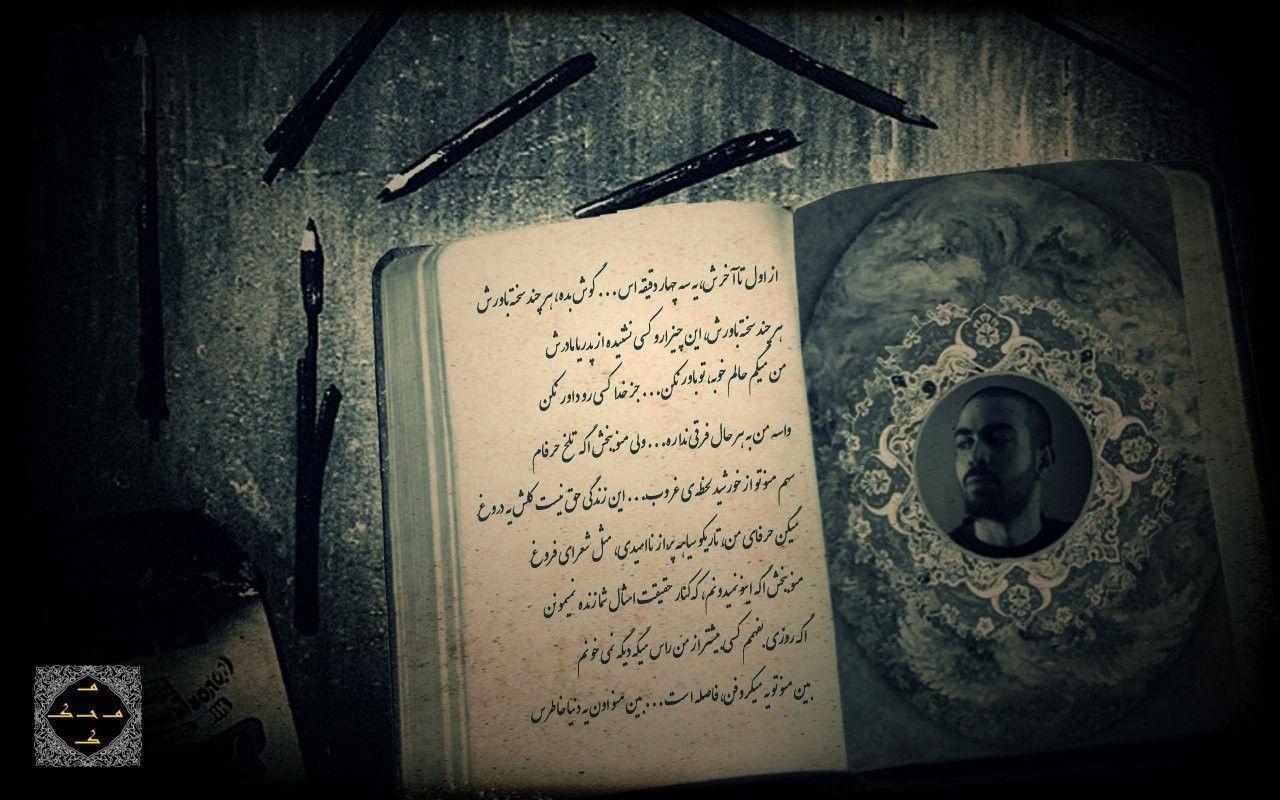 از اول تا آخرش، یه سه چهار دقیقه اس... گوش بده، هر چند سخته باورش
هر چند سخته باورش، این چیزارو کسی نشنیده از پدر یا مادرش
من میگم حالم خوبه، تو باور نکن... جز خدا کسی رو داور نکن
واسه من به هر حال فرقی نداره... ولی منو ببخش اگه تلخ حرفام
سهم منو تو از خورشید لحظه ی غروب... این زندگی حق نیست کلش یه دروغ
میگن حرفای من، تاریکو سیاهه پر از ناامیدی، مثل شعرای فروغ
منو ببخش اگه اینو نمیدونم، که کنار حقیقت امثال شما زنده نمیمونن
اگه روزی بفهمم کسی بیشتر از من راس میگه دیگه نمی خونم
بین منو تو یه میکروفن، فاصله است... بین منو اون یه دنیا خاطرس
محک